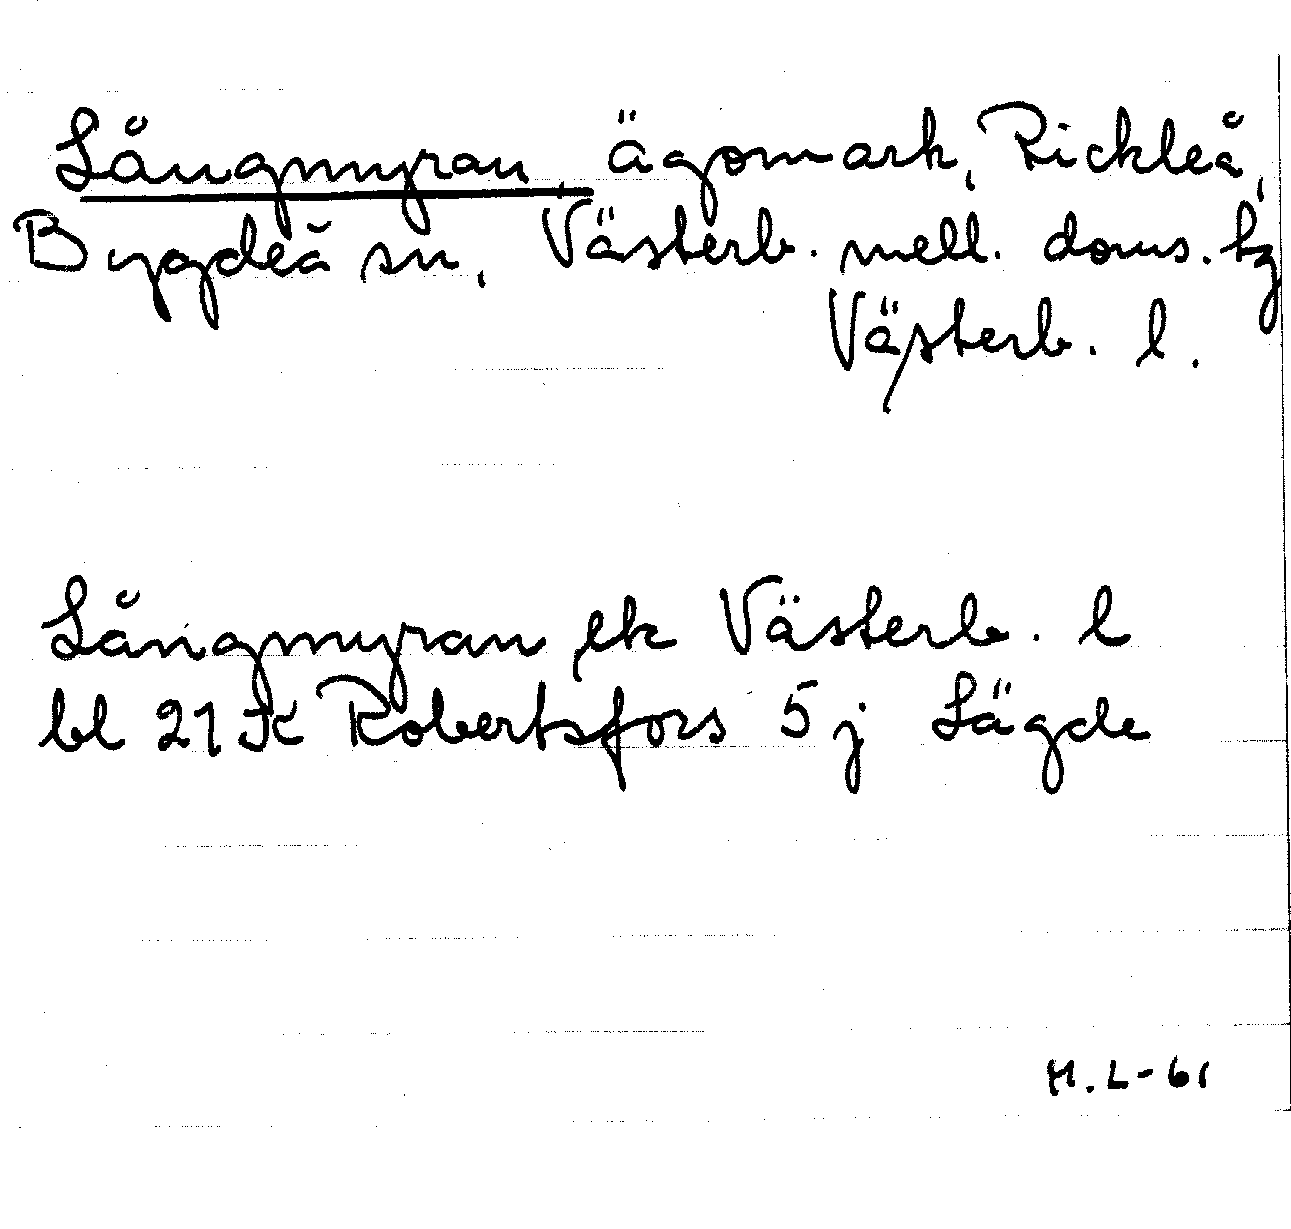 Långmyran, ägomark, Rickleå,
Bygdeå sn, Västerb. mell. doms. tg
Västerb. l.
Långmyran ek Västerb. l
bl 21 K Robertsfors 5 j Lägde
H.L-61